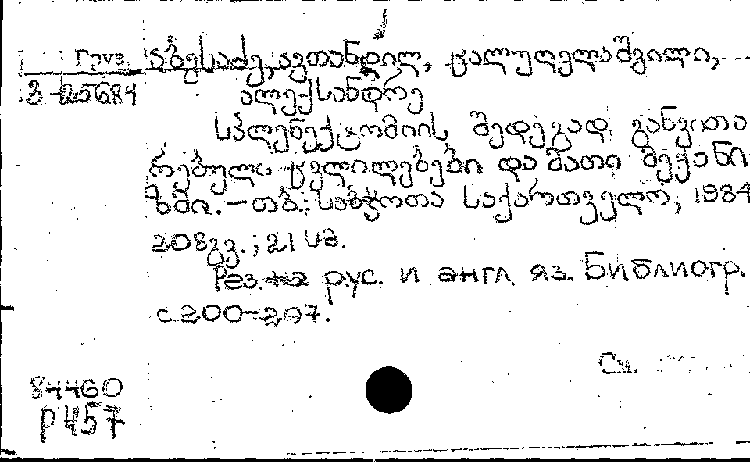 Груз. აბესაძე, ავთანდილ, ყალუღელაშვილი,
8-25684 ალექსანდრე
სპლენექტომიის შედეგად განვითა
რებული ცვლილებები და მათი მექანი
ზმი. – თბ.: საბჭოთა საქართველო, 1984
208გვ.; 21 სმ.
Рез. на рус. и англ. яз. Библиогр.
с 200-207.
См.
84460
р 457